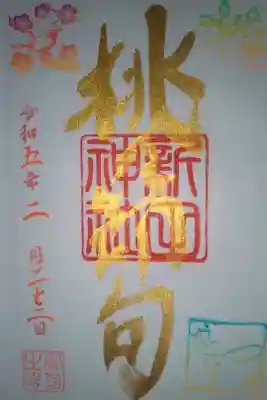 桃節句
新田
神社
令和五年二月二十七日